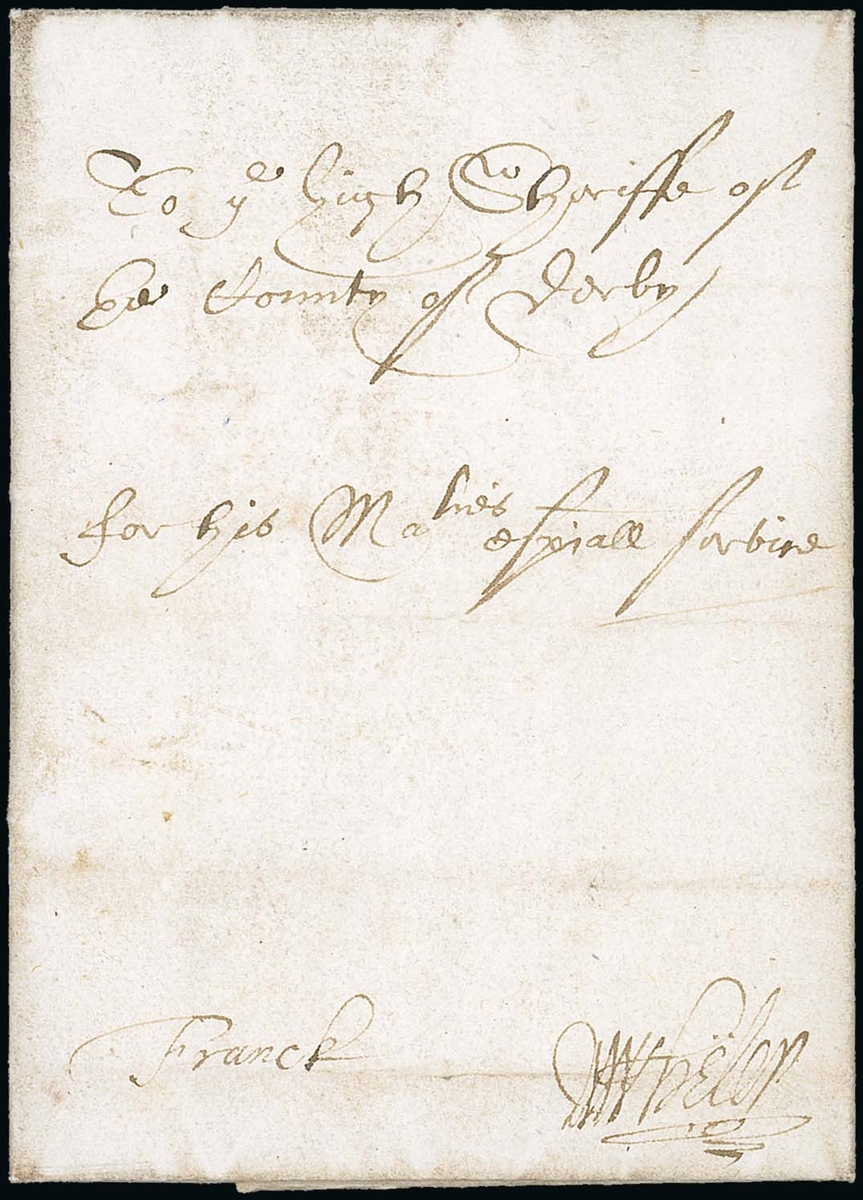 To ye high Sheriffe of
ye County of Derby
for his Maties espiall service
Franck